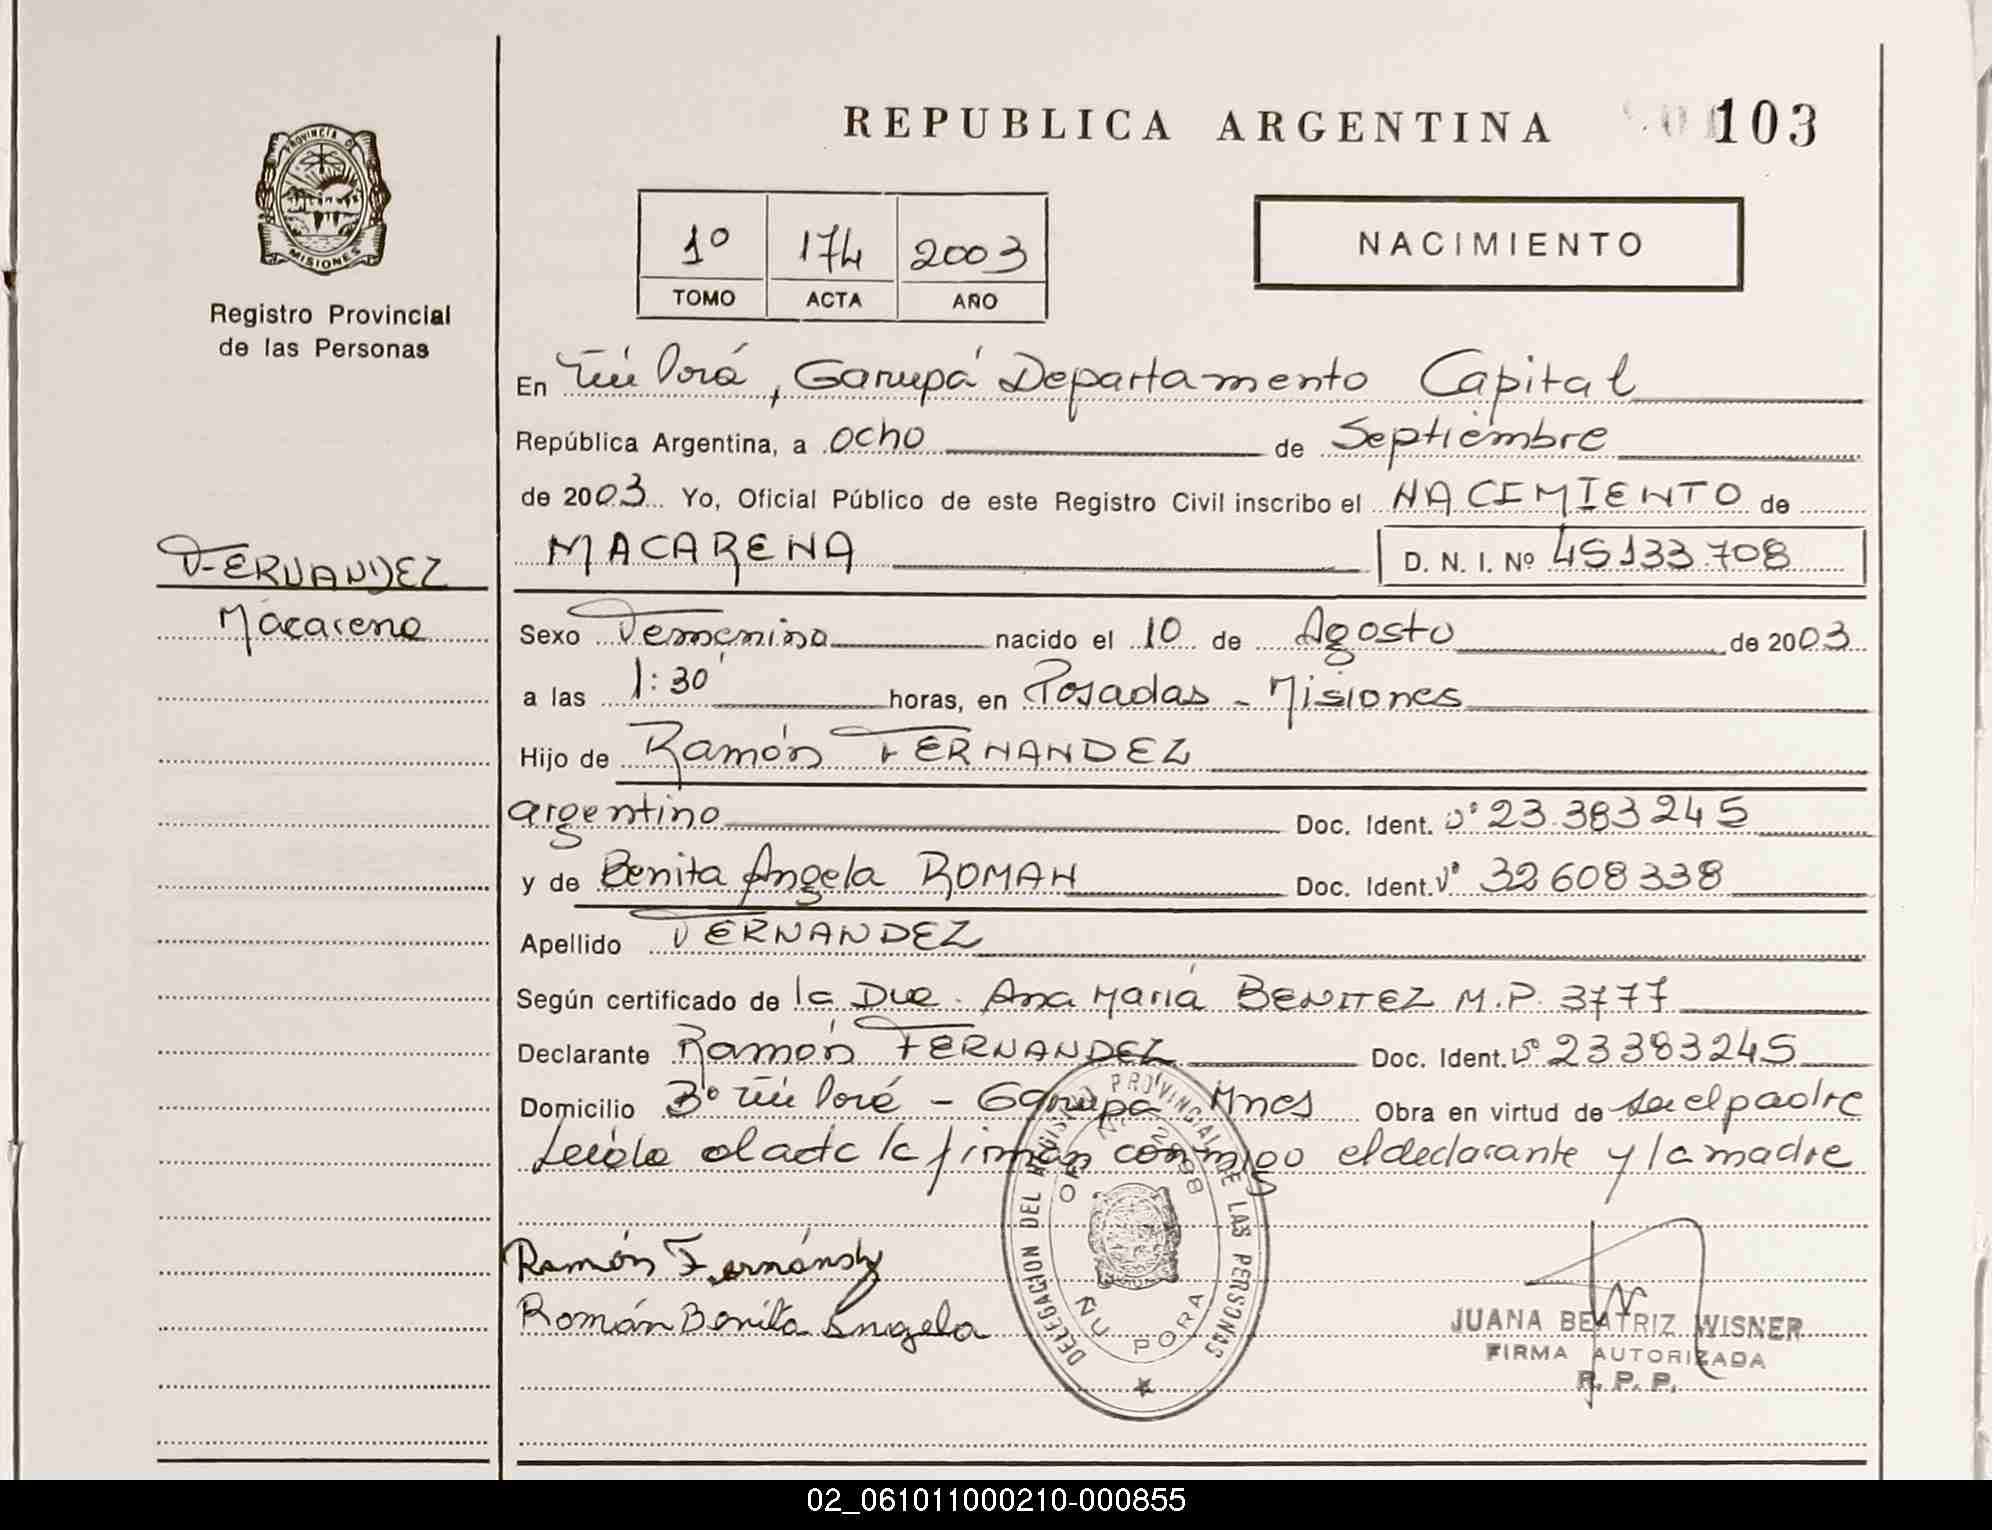 REPUBLICA ARGENTINA 103
PROVINCIA DE MISIONES
Registro Provincial
de las Personas
1º 174 2003
TOMO ACTA AÑO
NACIMIENTO
En Ñú Porá, Garupá Departamento Capital
República Argentina, a ocho de Septiembre
de 2003 Yo, Oficial Público de este Registro Civil inscribo el NACIMIENTO de
MACARENA D. N. I. Nº 45133.708
FERNANDEZ
Macarena
Sexo Femenino nacido el 10 de Agosto de 2003
a las 1:30' horas, en Posadas - Misiones
Hijo de Ramón FERNANDEZ
argentino Doc. Ident. Nº 23.383245
y de Benita Angela ROMAN Doc. Ident. Nº 32608338
Apellido FERNANDEZ
Según certificado de la Ana María BENITEZ M.P. 3777
Declarante Ramón FERNANDEZ Doc. Ident. Nº 23383245
Domicilio Bº Ñú Porá - Garupá Mnes Obra en virtud de ser el padre
Leída el acta la firman conmigo el declarante y la madre
Ramón Fernández
Román Benita Angela
DELEGACION DEL REGISTRO PROVINCIAL DE LAS PERSONAS
OF. Nº 2898
ÑU PORA
JUANA BEATRIZ WISNER
FIRMA AUTORIZADA
R. P. P.
02_061011000210-000855